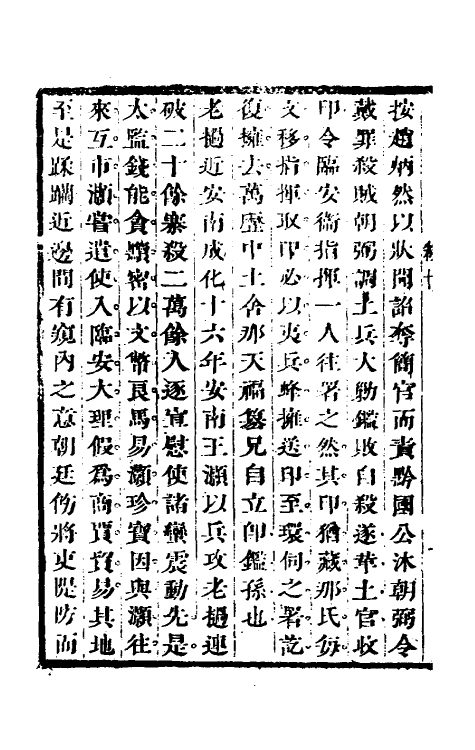 按趙炳然以狀聞詔奪簡官而責黔國公沐朝弼令
戴罪殺賊朝弼調土兵大勦鑑敗自殺遂革土官收
印令臨安衞指揮一人往署之然其印猶藏那氏每
文移指揮取印必以夷兵蜂擁送印至環伺之署訖
復擁去萬歷中土舍那天福簒兄自立卽鑑孫也
老撾近安南成化十六年安南王灝以兵攻老撾連
破二十餘寨殺二萬餘人逐宣慰使諸蠻震動先是
太監錢能貪黷密以文幣良馬易灝珍寶因與灝往
來互市灝嘗遣使入臨安大理假爲商賈貿易其地
至是蹂躪近邊間有窺內之意朝廷傷將吏隄防而
卷十